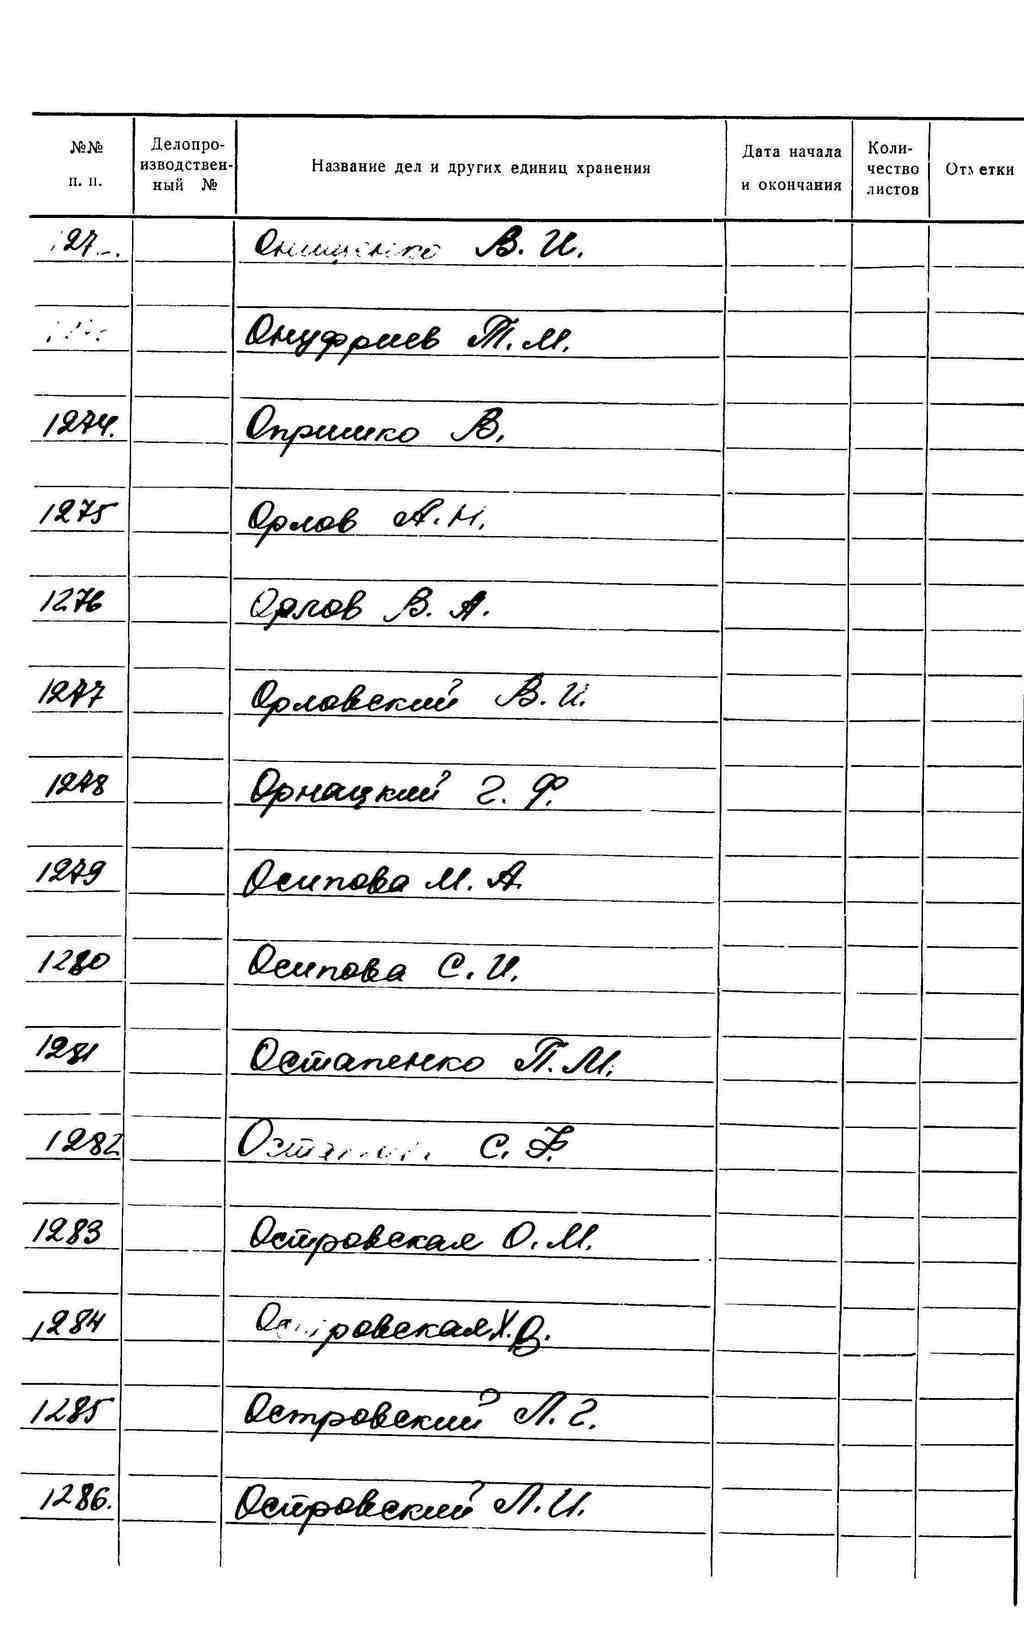 №№ п. п. Делопро-изводствен-ный № Название дел и других единиц хранения Дата начала и окончания Коли-чество листов Отметки
Онищенко В. И.
Онуфриев Т. М.
1274. Опришко В.
1275 Орлов А. Н.
1276 Орлов В. А.
1277 Орловский В. И.
1278 Орнацкий Г. Ф.
1279 Осипова М. А.
1280 Осипова С. И.
1281 Остапенко П. М.
1282 С. Ф.
1283 Островская О. М.
1284 Островская Х. В.
1285 Островский Л. Г.
1286. Островский Л. И.